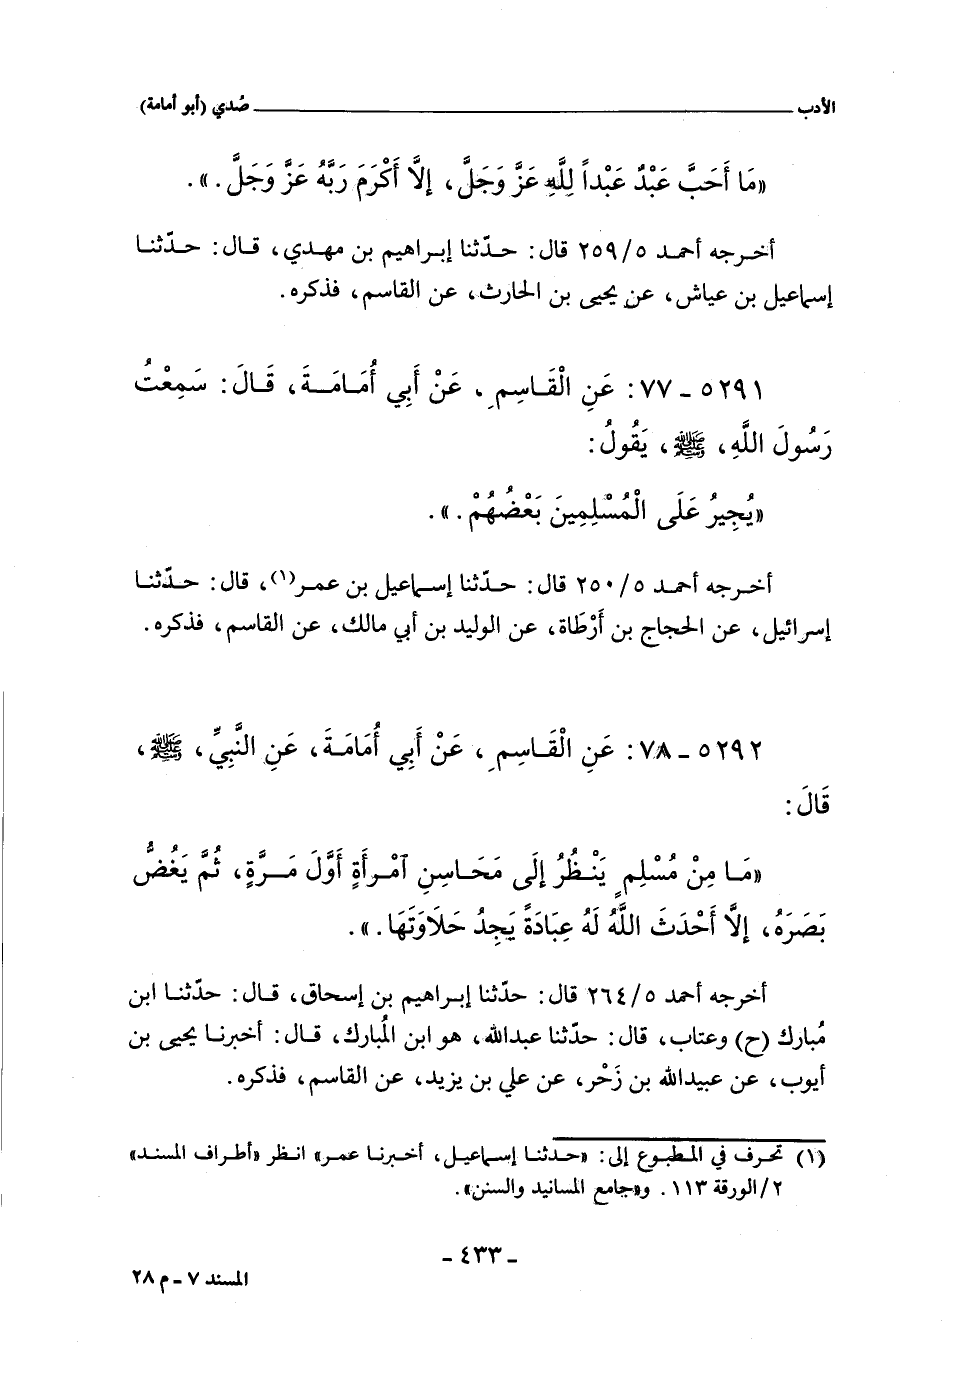 الأدب ــــــــــــ صُدي (أبو أمامة)
«مَا أَحَبَّ عَبْدٌ عَبْداً لِلَّهِ عَزَّ وَجَلَّ، إِلَّا أَكْرَمَ رَبَّهُ عَزَّ وَجَلَّ.».
أخرجه أحمد ٢٥٩/٥ قال: حدّثنا إبراهيم بن مهدي، قال: حدّثنا
إسماعيل بن عياش، عن يحيى بن الحارث، عن القاسم، فذكره.
٥٢٩١ - ٧٧: عَنِ الْقَاسِمِ، عَنْ أَبِي أُمَامَةَ، قَالَ: سَمِعْتُ
رَسُولَ اللَّهِ، ﷺ، يَقُولُ:
«يُجِيرُ عَلَى الْمُسْلِمِينَ بَعْضُهُمْ.».
أخرجه أحمد ٢٥٠/٥ قال: حدّثنا إسماعيل بن عمر(١)، قال: حدّثنا
إسرائيل، عن الحجاج بن أَرْطَاة، عن الوليد بن أبي مالك، عن القاسم، فذكره.
٥٢٩٢ - ٧٨: عَنِ الْقَاسِمِ، عَنْ أَبِي أُمَامَةَ، عَنِ النَّبِيِّ، ﷺ،
قَالَ:
«مَا مِنْ مُسْلِمٍ يَنْظُرُ إِلَى مَحَاسِنِ آمْرَأَةٍ أَوَّلَ مَرَّةٍ، ثُمَّ يَغُضُّ
بَصَرَهُ، إِلَّا أَحْدَثَ اللَّهُ لَهُ عِبَادَةً يَجِدُ حَلَاوَتَهَا.».
أخرجه أحمد ٢٦٤/٥ قال: حدّثنا إبراهيم بن إسحاق، قال: حدّثنا ابن
مُبارك (ح) وعتاب، قال: حدّثنا عبدالله، هو ابن المُبارك، قال: أخبرنا يحيى بن
أيوب، عن عبيدالله بن زَحْر، عن علي بن يزيد، عن القاسم، فذكره.
(١) تحرف في المطبوع إلى: «حدثنا إسماعيل، أخبرنا عمر» انظر «أطراف المسند»
٢/الورقة ١١٣. و«جامع المسانيد والسنن».
- ٤٣٣ -
المسند ٧ - م ٢٨